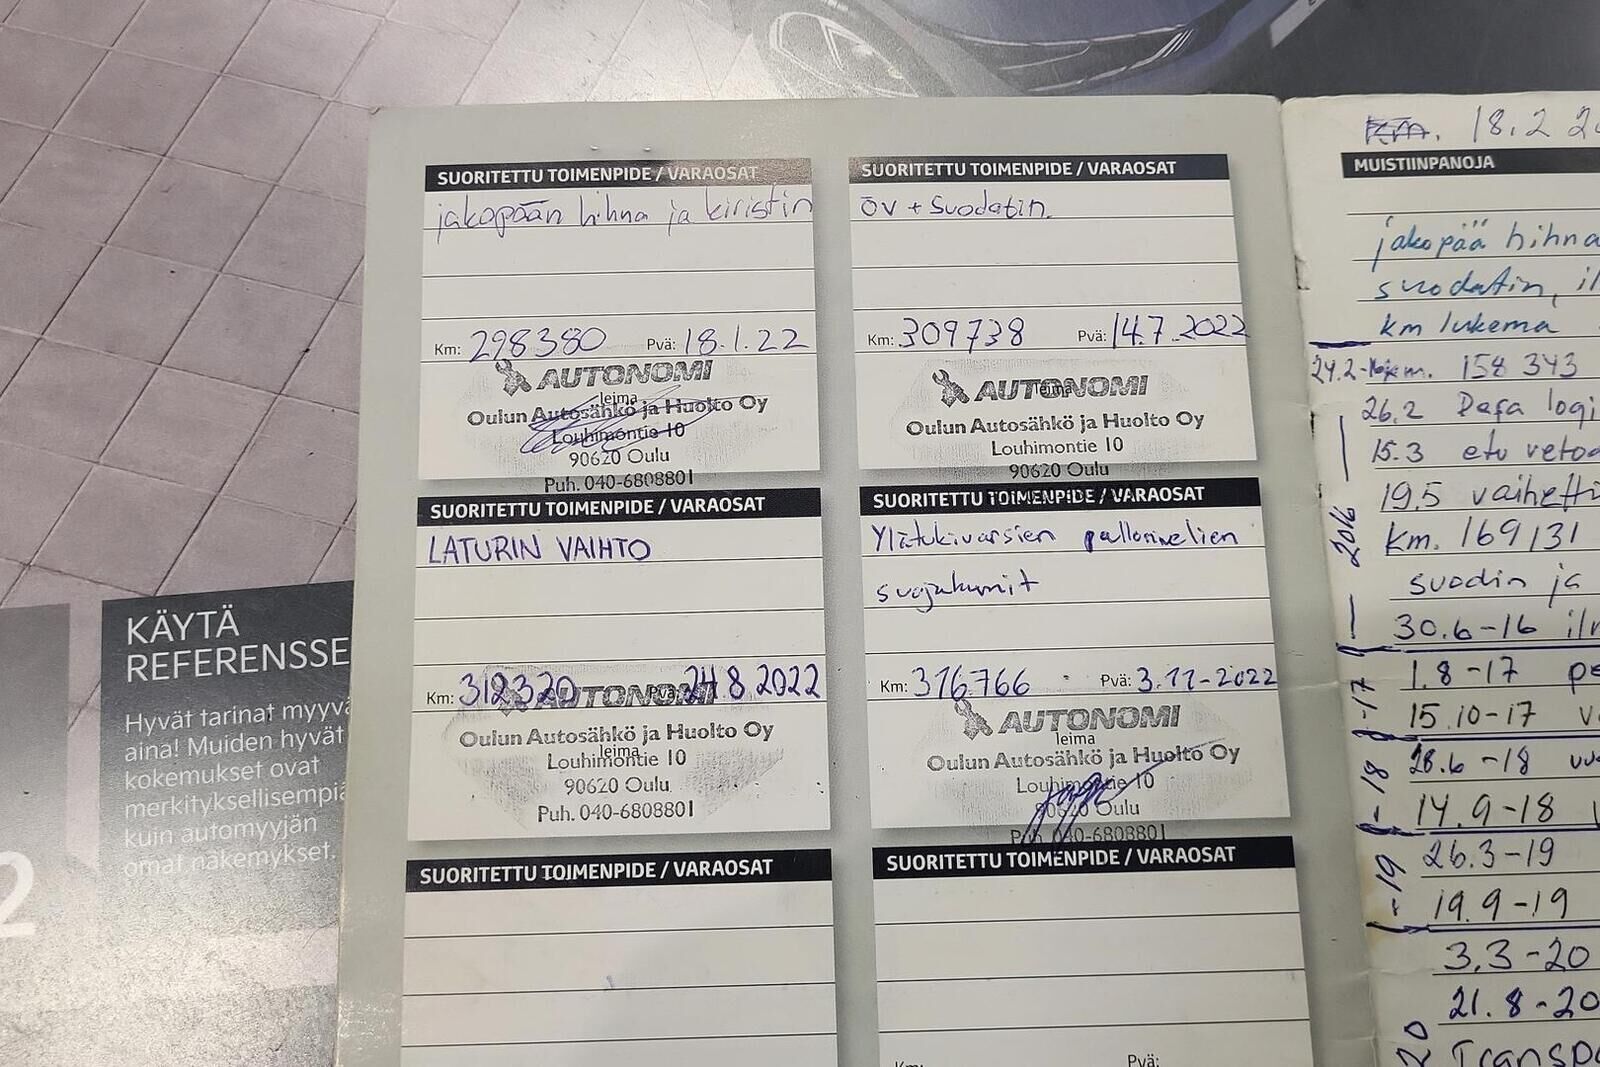 SUORITETTU TOIMENPIDE / VARAOSAT
jakopään hihna ja kiristin
Km: 298380 Pvä: 18.1.22
AUTONOMI
leima
Oulun Autosähkö ja Huolto Oy
Louhimontie 10
90620 Oulu
Puh. 040-6808801
SUORITETTU TOIMENPIDE / VARAOSAT
ÖV + Suodatin.
Km: 309738 Pvä: 14.7.2022
AUTONOMI
leima
Oulun Autosähkö ja Huolto Oy
Louhimontie 10
90620 Oulu
SUORITETTU TOIMENPIDE / VARAOSAT
LATURIN VAIHTO
Km: 312320 Pvä: 24.8.2022
AUTONOMI
Oulun Autosähkö ja Huolto Oy
leima
Louhimontie 10
90620 Oulu
Puh. 040-6808801
SUORITETTU TOIMENPIDE / VARAOSAT
Ylätukivarsien pallonivelien
suojakumit
Km: 316766 Pvä: 3.11-2022
AUTONOMI
leima
Oulun Autosähkö ja Huolto Oy
Louhimontie 10
90620 Oulu
Puh. 040-6808801
SUORITETTU TOIMENPIDE / VARAOSAT
SUORITETTU TOIMENPIDE / VARAOSAT
Km: Pvä:
km. 18.2
MUISTIINPANOJA
jakopää hihna
suodatin,
km lukema
24.2 158 343
26.2
15.3 etu
19.5
2016
Km. 169131
suodin ja
30.6-16
1.8-17
-17
15.10-17
28.6-18
-18
14.9-18
26.3-19
-19
19.9-19
3.3-20
21.8-20
20
KÄYTÄ
REFERENSSE
Hyvät tarinat myyvä
aina! Muiden hyvät
kokemukset ovat
merkityksellisempiä
kuin automyyjän
omat näkemykset.
2